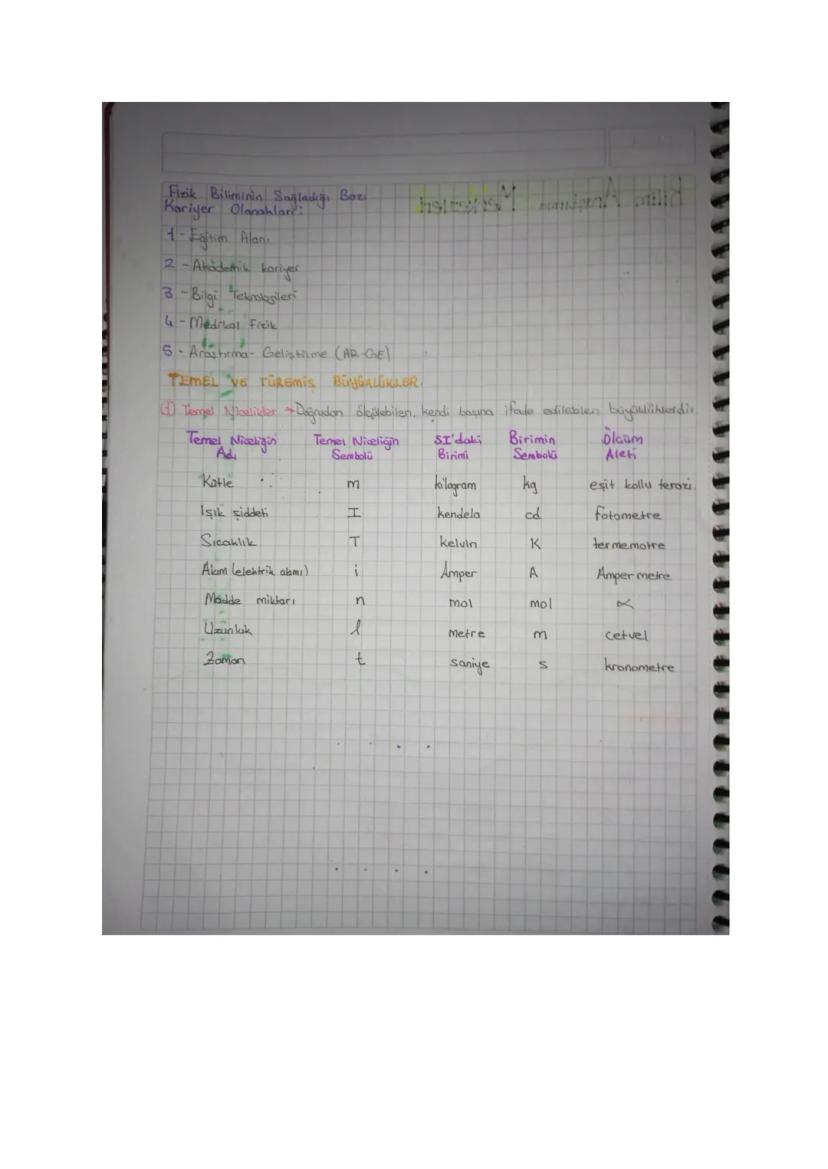 Fizik Biliminin Sağladığı Bazı
Kariyer Olanakları:
1 - Eğitim Alanı
2 - Akademik kariyer
3 - Bilgi Teknolojileri
4 - Medikal Fizik
5 - Araştırma - Geliştirme (AR-GE)
TEMEL VE TÜREMİŞ BÜYÜKLÜKLER
1) Temel Nicelikler → Doğrudan ölçülebilen, kendi başına ifade edilebilen büyüklüklerdir.
Temel Niceliğin Adı Temel Niceliğin Sembolü SI'daki Birimi Birimin Sembolü Ölçüm Aleti
Kütle m kilogram kg eşit kollu terazi.
Işık şiddeti I kendela cd fotometre
Sıcaklık T kelvin K termemotre
Akım (elektrik akımı) i Amper A Ampermetre
Madde miktarı n mol mol
Uzunluk l metre m cetvel
Zaman t saniye s kronometre